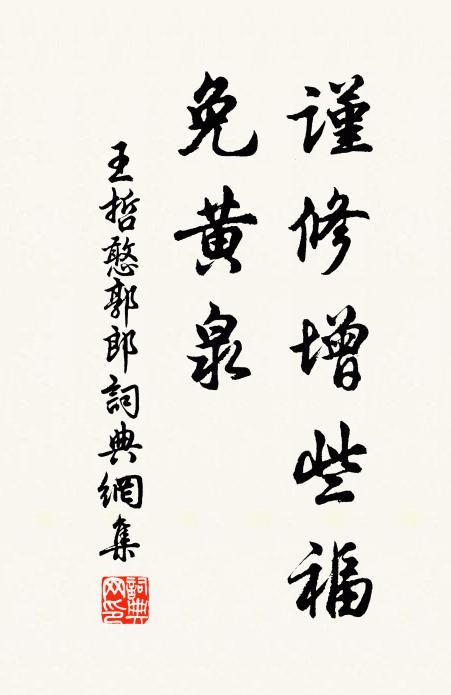 謹修增些福
免黄泉
王哲憨郭郎詞典網集
詞典
网印